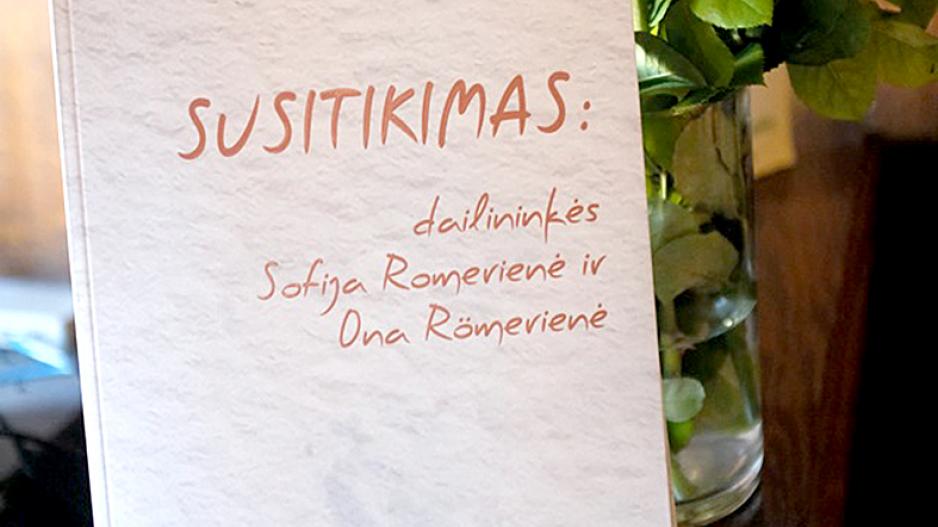 SUSITIKIMAS:
dailininkės
Sofija Romerienė ir
Ona Römerienė